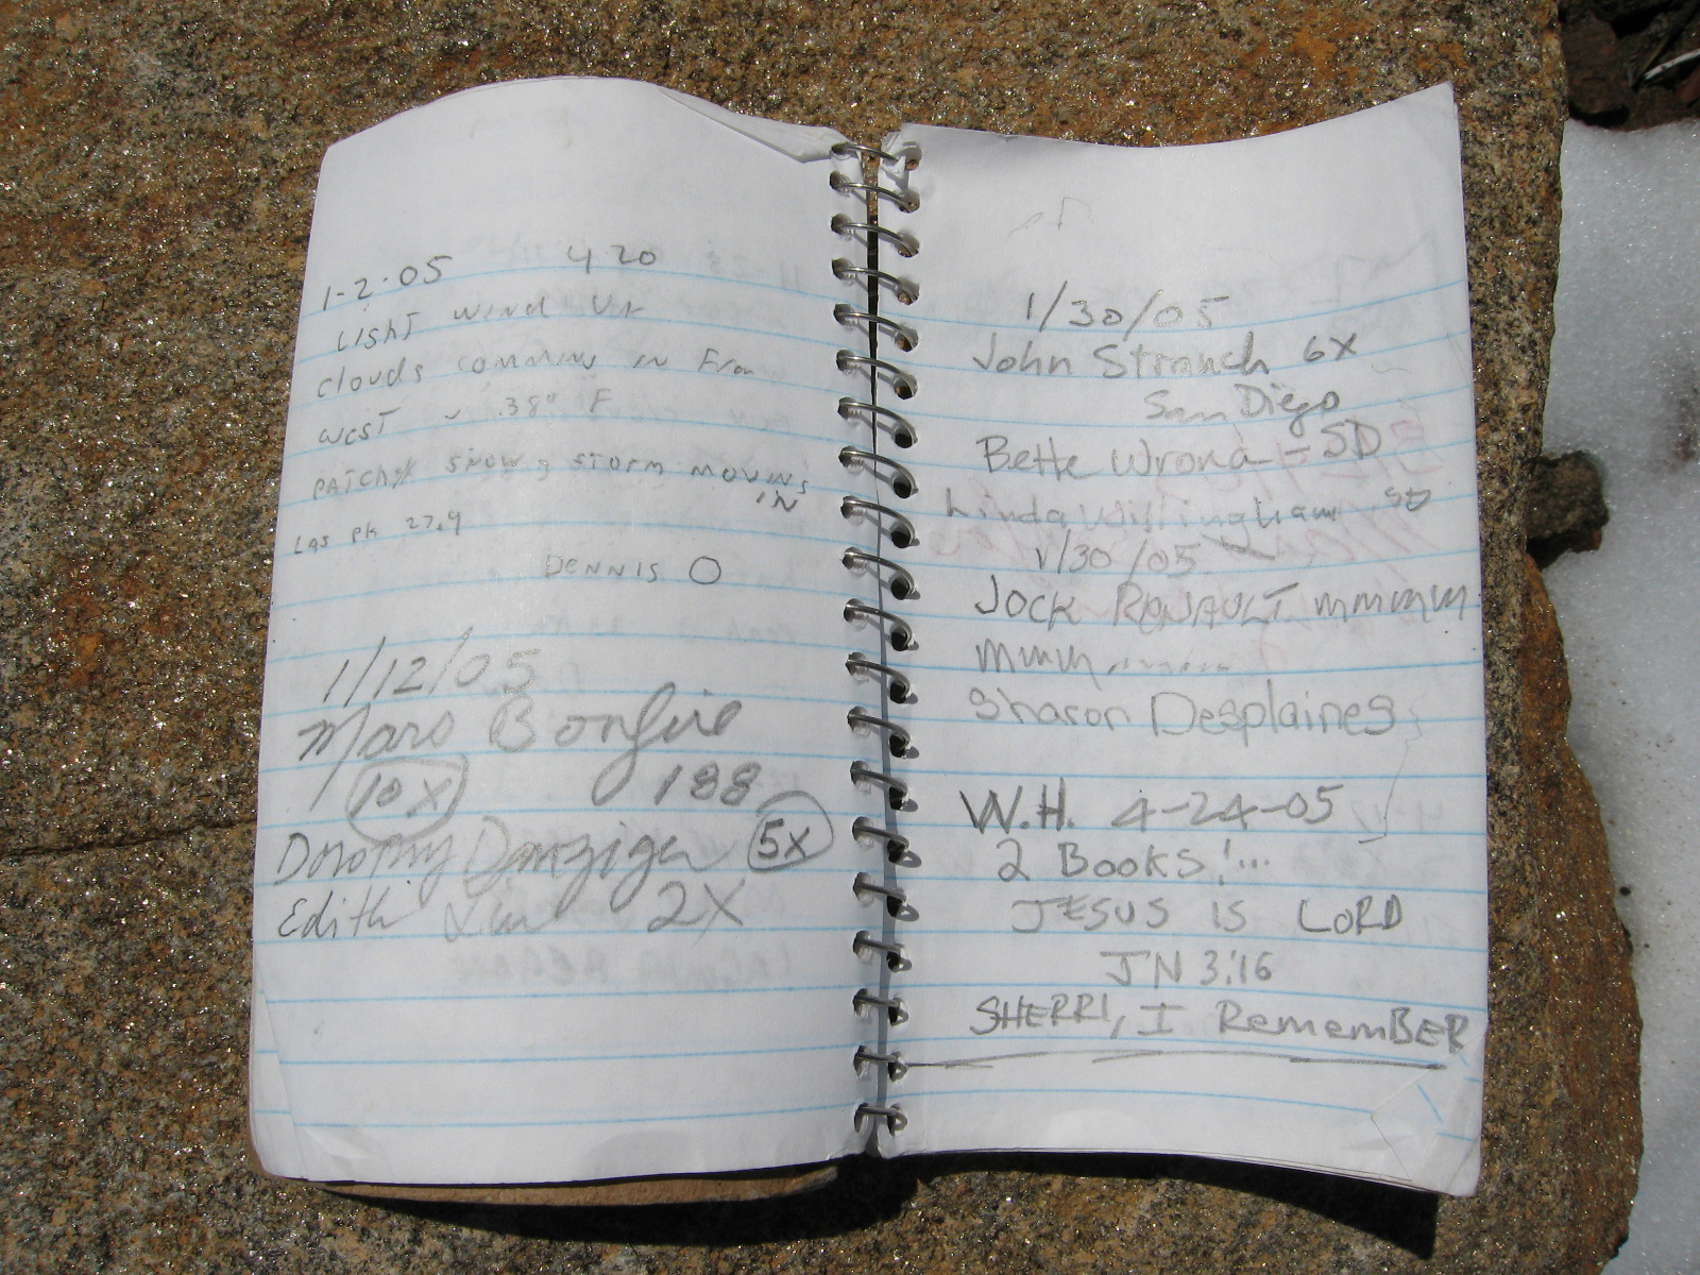 1-2-05 420
LIGHT WIND
Clouds comming in From
WEST ~ 38° F
PATCHY SNOW, STORM MOVING
IN
Las pk 27,9
DENNIS O
1/12/05
Mars Bonfire
10x 188
Dorothy Danziger 5x
Edith Liu 2X
1/30/05
John Strauch 6X
San Diego
Bette Wrona - SD
Linda Willingham SD
1/30/05
JOCK
Sharon Desplaines
W.H. 4-24-05
2 Books!...
JESUS IS LORD
JN 3:16
SHERRI, I RememBER